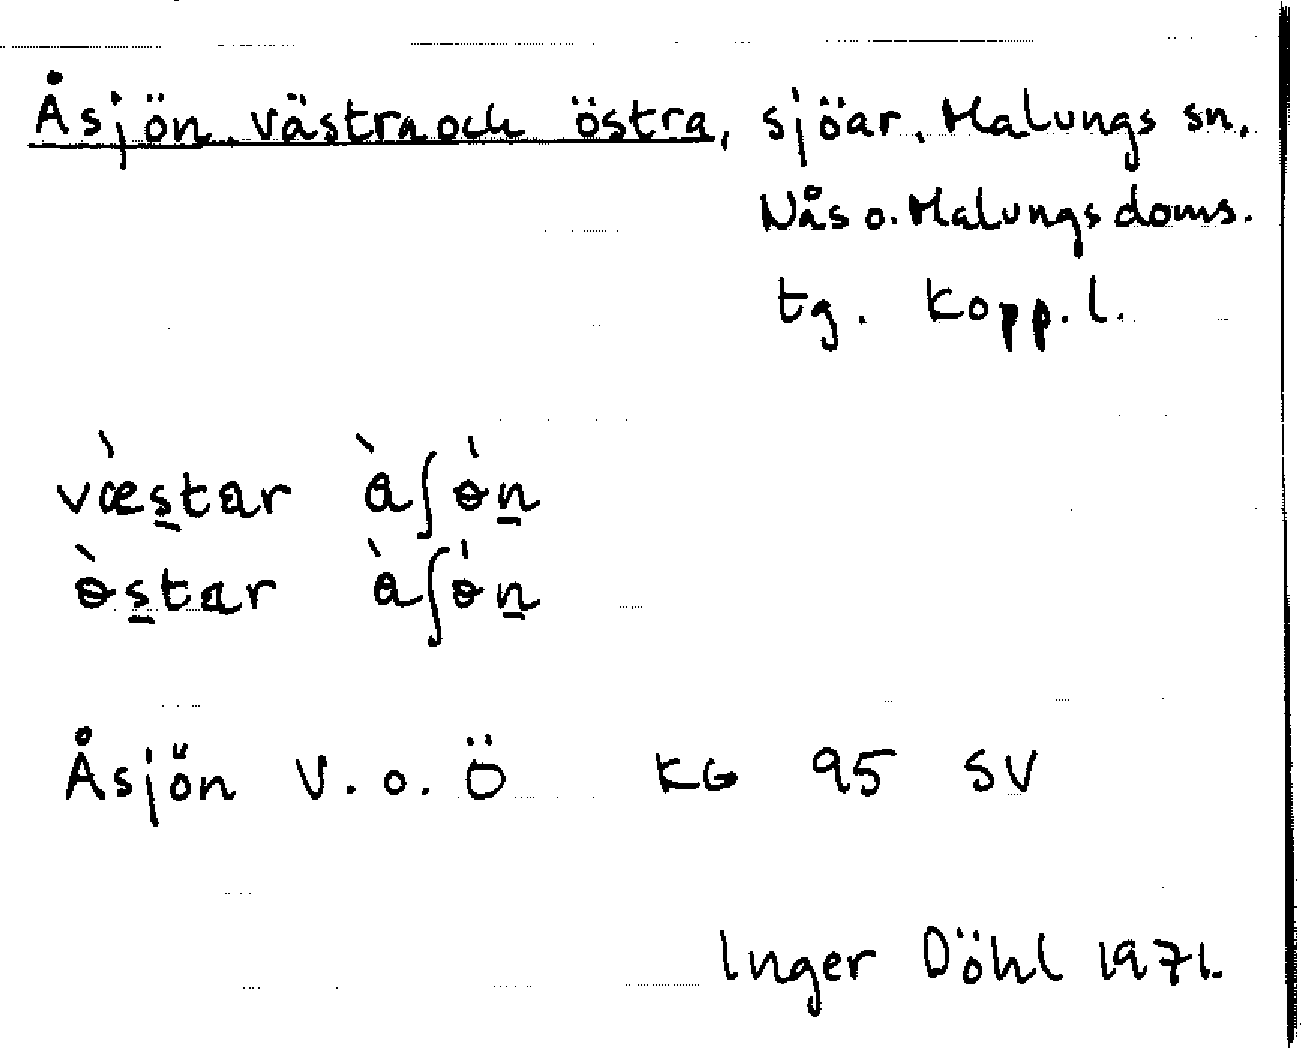 Åsjön, västra och östra, sjöar, Malungs sn,
Nås o. Malungs doms.
tg. Kopp. l.
væ̀s̲tar àʃɵ́n̲
ɵ̀s̲tar àʃɵ́n̲
Åsjön V. o. Ö KG 95 SV
Inger Döhl 1971.